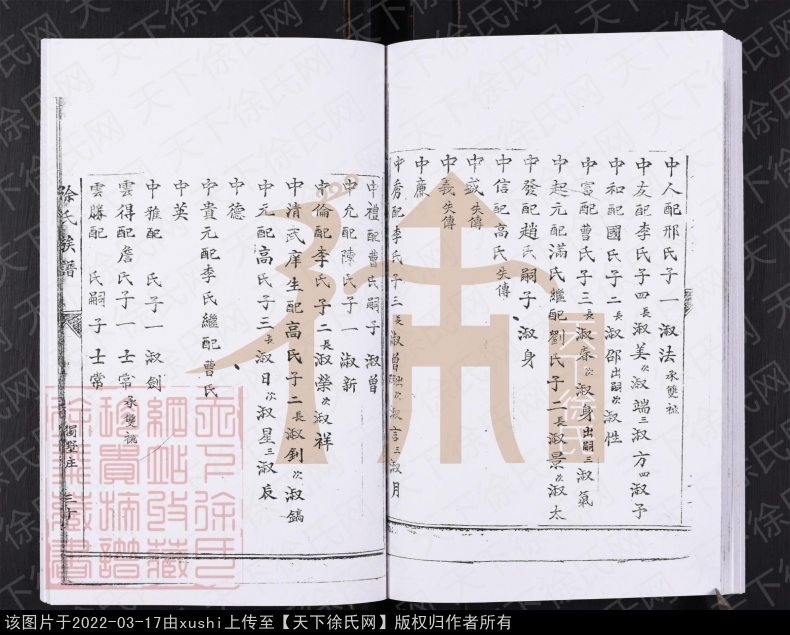 中人配邢氏子一淑法承雙祧
中友配李氏子四長淑美次淑端三淑方四淑予
中和配國氏子二長淑邵出嗣次淑性
中富配曹氏子三長淑春次淑身出嗣三淑氣
中起元配滿氏繼配劉氏子二長淑景次淑太
中發配趙氏嗣子淑身
中信配高氏失傳
中誠失傳
中義失傳
中廉
中秀配李氏子三長淑曾出嗣次淑言三淑月
中禮配曹氏嗣子淑曾
中允配陳氏子一淑新
中倫配李氏子二長淑榮次淑祥
中清武庠生配高氏子二長淑釗次淑鎬
中元配高氏子三長淑日次淑星三淑辰
中德
中貴元配李氏繼配曹氏
中英
中雅配 氏子一淑劍
雲得配詹氏子一士常承雙祧
雲勝配 氏嗣子士常
徐氏族譜
三十
天下徐氏網
该图片于2022-03-17由xushi上传至【天下徐氏网】版权归作者所有